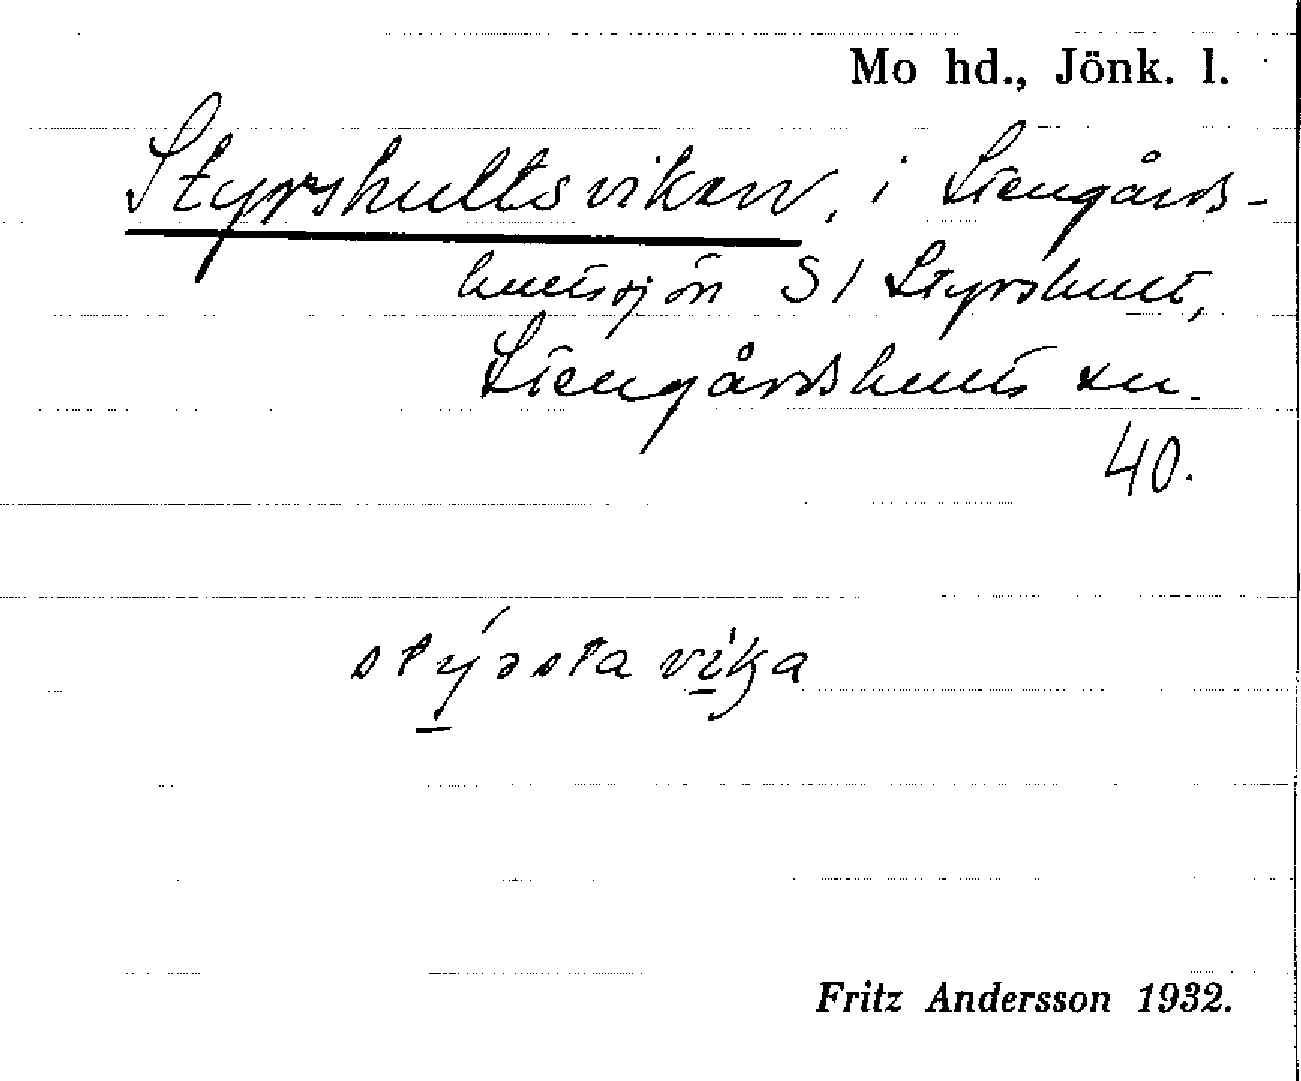 Mo hd., Jönk. l.
Styrshultsviken, i Stengårds-
hultsjön S/ Styrshult,
Stengårdshults sn.
40.
Fritz Andersson 1932.